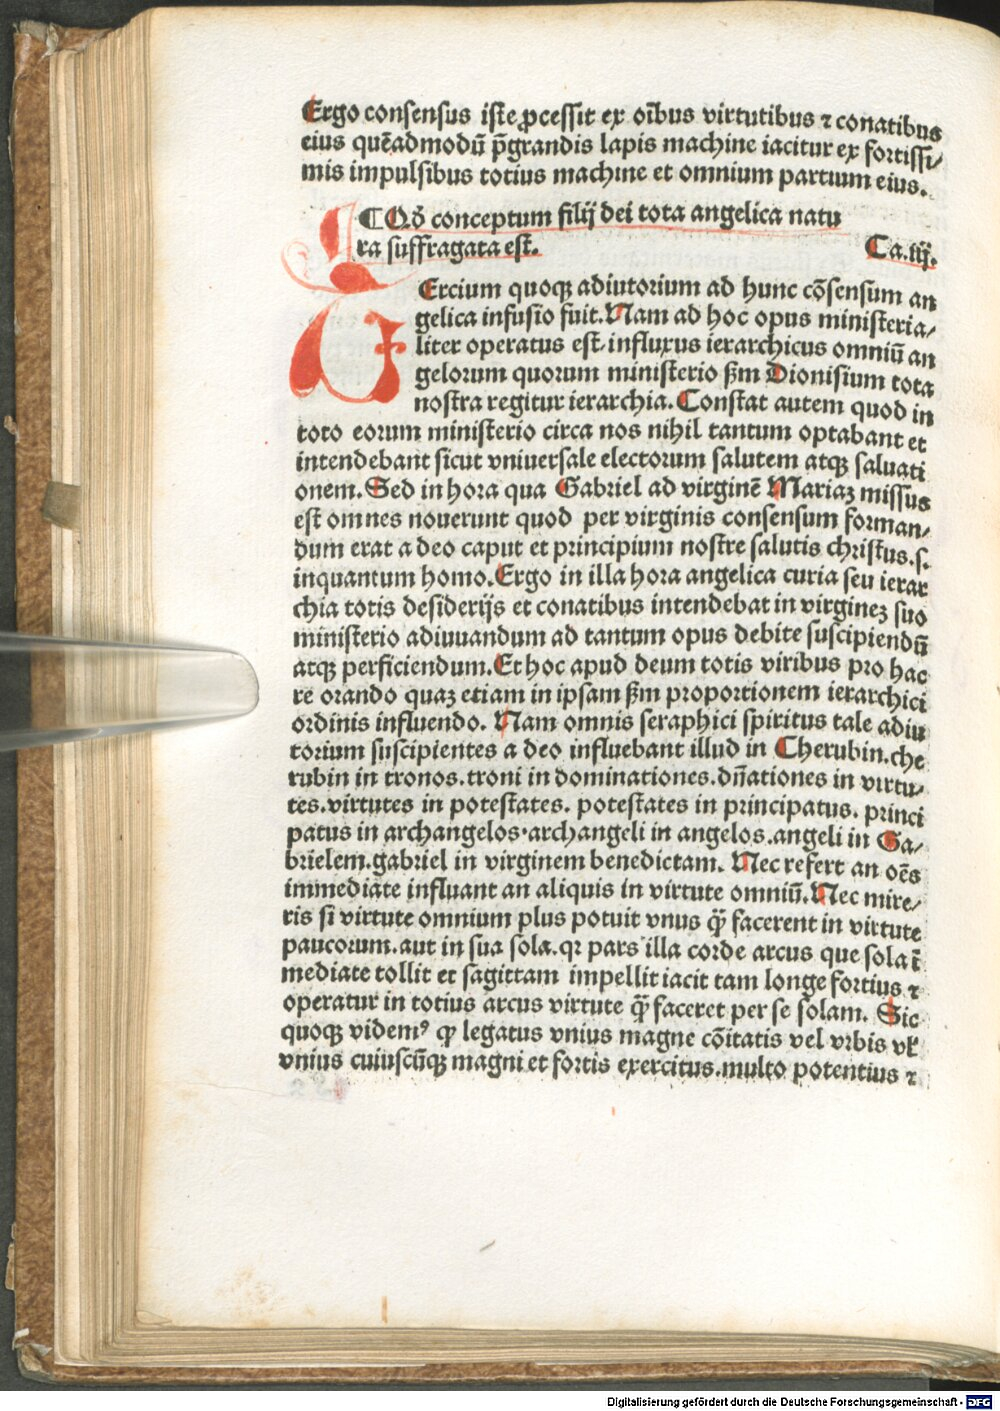 Ergo consensus iste ꝓcessit ex oībus virtutibus ⁊ conatibus
eius quēadmodū p̄grandis lapis machine iacitur ex fortissi⸗
mis impulsibus totius machine et omnium partium eius.
¶ Qỏ conceptum filij dei tota angelica natu
ra suffragata est. Ca.iij.
TErcium quoqꝫ adiutorium ad hunc cōsensum an
gelica infusio fuit. Nam ad hoc opus ministeria⸗
liter operatus est influxus ierarchicus omniū an
gelorum quorum ministerio ẜm Dionisium tota
nostra regitur ierarchia. Constat autem quod in
toto eorum ministerio circa nos nihil tantum optabant et
intendebant sicut vniuersale electorum salutem atqꝫ saluati
onem. Sed in hora qua Gabriel ad virginē Mariaꝫ missus
est omnes nouerunt quod per virginis consensum forman⸗
dum erat a deo caput et principium nostre salutis christus.s.
inquantum homo. Ergo in illa hora angelica curia seu ierar
chia totis desiderijs et conatibus intendebat in virgineꝫ suo
ministerio adiuuandum ad tantum opus debite suscipiendū
atqꝫ perficiendum. Et hoc apud deum totis viribus pro hac
re orando quaꝫ etiam in ipsam ẜm proportionem ierarchici
ordinis influendo. Nam omnis seraphici spiritus tale adiu
torium suscipientes a deo influebant illud in Cherubin.che
rubin in tronos.troni in dominationes.dn̄ationes in virtu⸗
tes.virtutes in potestates. potestates in principatus. princi
patus in archangelos.archangeli in angelos.angeli in Ga⸗
brielem.gabriel in virginem benedictam. Nec refert an oēs
immediate influant an aliquis in virtute omniū. Nec mire⸗
ris si virtute omnium plus potuit vnus q̈ꝫ facerent in virtute
paucorum.aut in sua sola.qꝛ pars illa corde arcus que sola ī
mediate tollit et sagittam impellit iacit tam longe fortius ⁊
operatur in totius arcus virtute q̈ꝫ faceret per se solam. Sic
quoqꝫ videmꝰ ꝙ legatus vnius magne cōitatis vel vrbis vl̕
vnius cuiuscūqꝫ magni et fortis exercitus.multo potentius ⁊
Digitalisierung gefördert durch die Deutsche Forschungsgemeinschaft - DFG